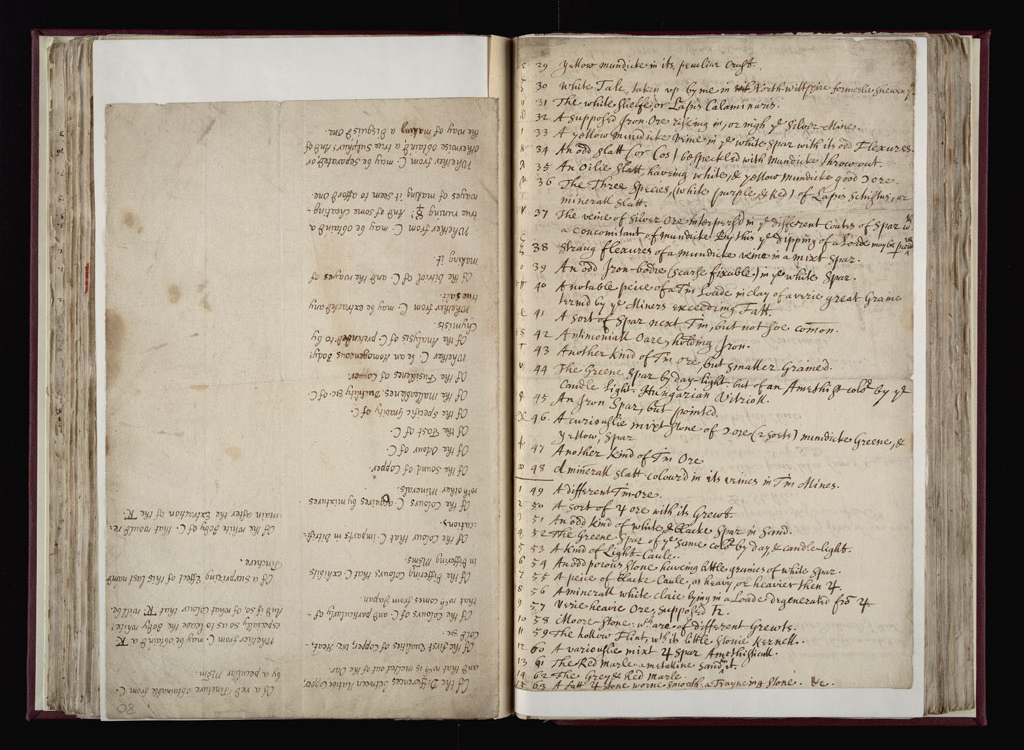 Of the Differences between native Copper,
and that wch is melted out of the Oar.
Of the first Qualities of Copper, viz. Heat,
Cold &c.
Of the Colours of C. and particularly of
that wch comes from Japan.
Of the differing Colours that C. exhibits
in differing Mstms.
Of the Colour that C. imparts in Vitrifi-
cations.
Of the Colours C. acquires by mixtures
wth other Minerals.
Of the Sound of Copper
Of the Odour of C.
Of the Tast of C.
Of the Specific Gravity of C.
Of the Malleablenes Ductility &c. of C.
Of the Fusibleness of Copper.
Whether C. be an Homogeneous Body.
Of the Analysis of C. pretended to by
Chymists
Whether from C. may be extracted any
true Salt.
Of the Vitriol of C. and the wayes of
making it.
Whether from C. may be obtaind
true running ☿. And of some cheating-
wayes of making it seem to afford one
Whether from C. may be separated or
otherwise obtaind a true Sulphur: And of
the way of making a Disguis'd one.
Of a red Tincture obtainable from C.
by a peculiar Mstm.
Whether from C. may be obtaind a
especially so as to leave the Body white;
And if so, of what colour that will be
Of a surprizing Effect of this last namd
Tincture.
Of the white Body of C. that would re-
main after the Extraction of the
29 Yellow mundicke in its peculiar Crust.
30 White Talc, taken up by me in North-wiltshire formerlie
31 The white shelfe, or Lapis Calaminaris.
32 A supposd Iron-Ore riseing in, or nigh ye Silver-Mines.
33 A yellow Mundicke Veine in ye white Spar with its odd Flexures.
34 An odd slatt (or Cos) bespeckled with Mundicke throwout.
35 An Oilie Slatt, haveing white, & yellow Mundicke good Oore.
36 The Three Species, (white, purple & Red) of Lapis Schistus, or
minerall Slatt.
37 The veine of Silver Ore interspersd in ye different Coats of Spar
a concomitant of mundicke. By this ye dipping of a Loade may be
38 Strang flexures of a mundicke veine in a mixt Spar.
39 An odd Iron-bodie (scarse fixable) in ye white Spar.
40 A notable peice of a Tin Loade in clay of a verie great Graine
termd by ye Miners exceeding Fatt.
41 A sort of Spar next Tin, but not soe comon.
42 Antimoniall Oare, holding Iron.
43 Another kind of Tin ore, but smaller Grained.
44 The Greene Spar by day-light, but of an Amethist cold by ye
Candle light. Hungarian Vitrioll.
45 An Iron Spar, but pointed.
46. A curiouslie mixt stone of Oore (2 sorts) mundicke Greene, &
Yellow, Spar
47 Another kind of Tin Ore
48 A minerall slatt colourd in its veines in Tin Mines.
49 A different Tin-ore.
50 A sort of ♃ ore with its Grewt.
51 An odd kind of white & blacke Spar in Send.
52 The Greene Spar of ye same cold by day & candle-light.
53 A kind of Light-Caule.
54 An odd porous stone haveing little graines of white spar.
55 A peice of blacke Caule, as heavy, or heavier then ♃.
56 A minerall white claie lying in a Loade degenerated from ♃
57 Verie heavie Ore, supposed ♄.
58 Moore-stone: wch are of different Grewts.
59 The hollow Flint, wth its little stonie Kernell.
60 A variouslie mixt ♃ Spar Amethisticall.
61 The Red Marle a metalline sand in it.
62 The Grey & Red Marle.
63 A fatt ♃ stone worne smooth, a Frayneing stone. &c.